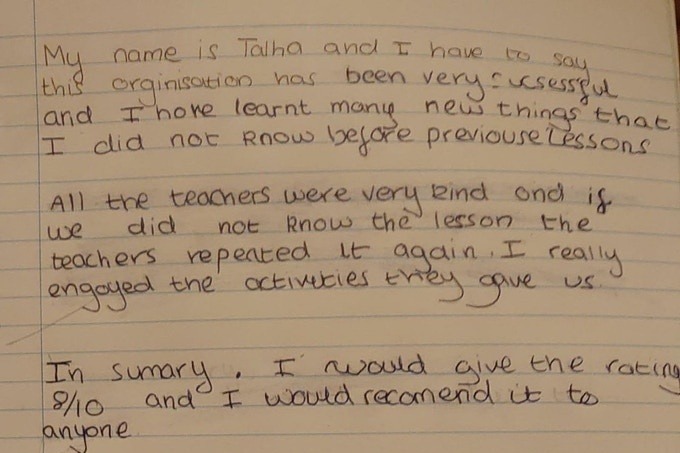 My name is Talha and I have to say
this orginisation has been very sucsessful
and I have learnt many new things that
I did not know before previouse lessons
All the teachers were very kind and if
we did not know the lesson the
teachers repeated it again. I really
engoyed the activities they gave us.
In sumary, I would give the rating
8/10 and I would recomend it to
anyone